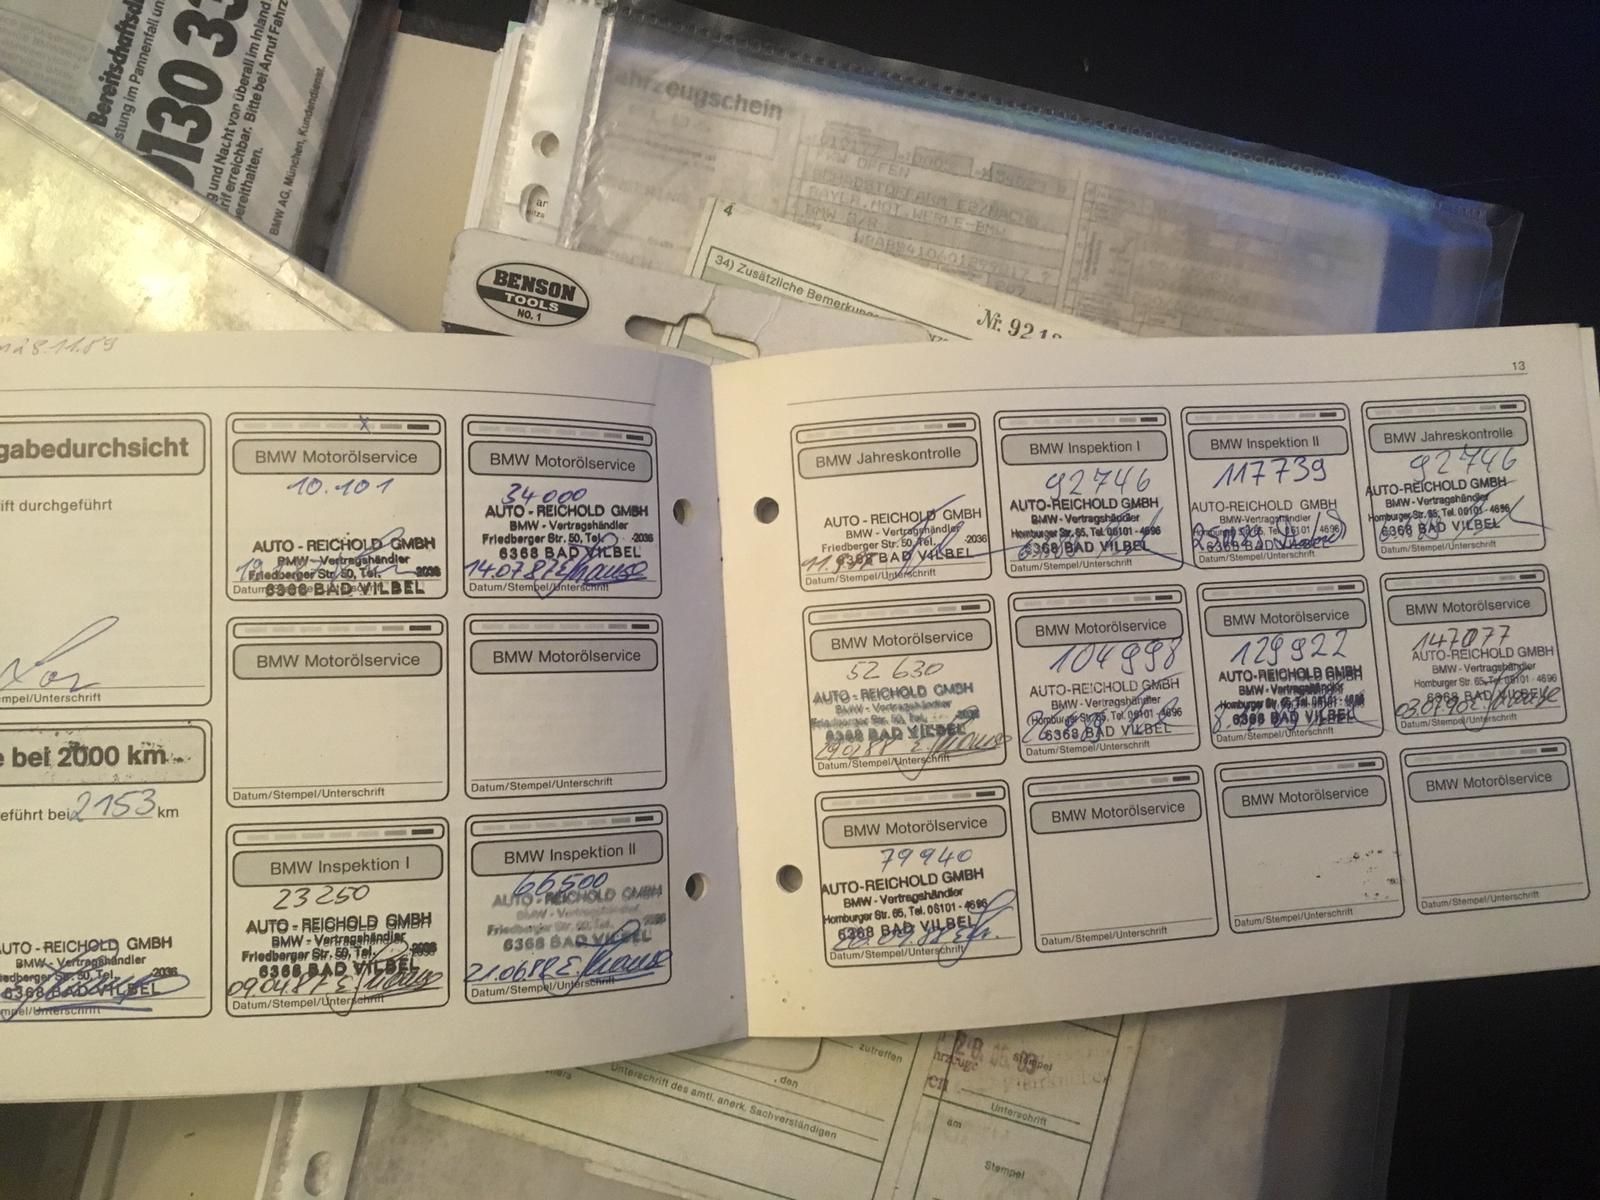 Bereitschaftsd
stung im Pannenfall un
0130 33
g und Nacht von überall im Inland
rif erreichbar. Bitte bei Anruf Fahrz
ereithalten.
BMW AG, München, Kundendienst.
ahrzeugschein
PKW OFFEN
BAYER.MOT.WERKE-BMW
4
34) Zusätzliche Bemerkun
Nr. 921
BENSON
TOOLS
NO. 1
8.11.89
gabedurchsicht
ift durchgeführt
mpel/Unterschrift
e bei 2000 km
eführt bei 2153 km
AUTO - REICHOLD GMBH
BMW - Vertragshändler
iedberger Str. 50, Tel. 2036
6368 BAD VILBEL
mpel/Unterschrift
BMW Motorölservice
10.101
AUTO - REICHOLD GMBH
BMW - Vertragshändler
Friedberger Str. 50, Tel. 2036
6368 BAD VILBEL
Datum/Stempel/Unterschrift
BMW Motorölservice
34000
AUTO - REICHOLD GMBH
BMW - Vertragshändler
Friedberger Str. 50, Tel. -2036
6368 BAD VILBEL
14.07.87
Datum/Stempel/Unterschrift
BMW Motorölservice
Datum/Stempel/Unterschrift
BMW Motorölservice
Datum/Stempel/Unterschrift
BMW Inspektion I
23250
AUTO - REICHOLD GMBH
BMW - Vertragshändler
Friedberger Str. 50, Tel. 2036
6368 BAD VILBEL
09.04.87
Datum/Stempel/Unterschrift
BMW Inspektion II
66500
AUTO - REICHOLD GMBH
BMW - Vertragshändler
Friedberger Str. 50, Tel. 2036
6368 BAD VILBEL
21.06.88
Datum/Stempel/Unterschrift
13
BMW Jahreskontrolle
AUTO - REICHOLD GMBH
BMW - Vertragshändler
Friedberger Str. 50, Tel. -2036
6368 BAD VILBEL
Datum/Stempel/Unterschrift
BMW Inspektion I
92746
AUTO-REICHOLD GMBH
BMW - Vertragshändler
Homburger Str. 65, Tel. 06101 - 4696
6368 BAD VILBEL
Datum/Stempel/Unterschrift
BMW Inspektion II
117739
AUTO-REICHOLD GMBH
BMW-Vertragshändler
Homburger Str. 65, Tel. 06101 4696
6368 BAD VILBEL
Datum/Stempel/Unterschrift
BMW Jahreskontrolle
92746
AUTO-REICHOLD GMBH
BMW - Vertragshändler
Homburger Str. 65, Tel. 06101 - 4696
6368 BAD VILBEL
Datum/Stempel/Unterschrift
BMW Motorölservice
52 630
AUTO - REICHOLD GMBH
BMW - Vertragshändler
Friedberger Str. 50, Tel. 2036
6368 BAD VILBEL
Datum/Stempel/Unterschrift
BMW Motorölservice
104998
AUTO-REICHOLD GMBH
BMW - Vertragshändler
Homburger Str. 65, Tel. 06101 - 4696
6368 BAD VILBEL
Datum/Stempel/Unterschrift
BMW Motorölservice
129922
AUTO-REICHOLD GMBH
BMW - Vertragshändler
Homburger Str. 65, Tel. 06101 - 4696
6368 BAD VILBEL
Datum/Stempel/Unterschrift
BMW Motorölservice
147077
AUTO-REICHOLD GMBH
BMW - Vertragshändler
Homburger Str. 65, Tel. 06101 - 4696
6368 BAD VILBEL
03.07.90
Datum/Stempel/Unterschrift
BMW Motorölservice
79940
AUTO-REICHOLD GMBH
BMW - Vertragshändler
Homburger Str. 65, Tel. 06101 - 4696
6368 BAD VILBEL
Datum/Stempel/Unterschrift
BMW Motorölservice
Datum/Stempel/Unterschrift
BMW Motorölservice
Datum/Stempel/Unterschrift
BMW Motorölservice
Datum/Stempel/Unterschrift
zutreffen
, den
Unterschrift des amtl. anerk. Sachverständigen
Unterschrift
am
Stempel